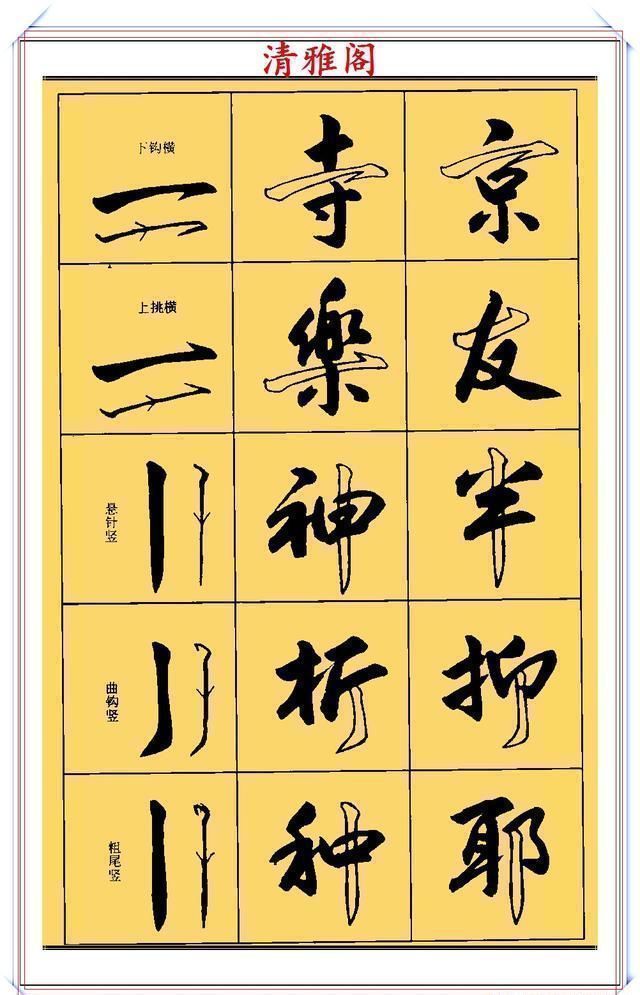 清雅阁
下钩横 寺 京
上挑横 樂 友
悬针竖 神 半
曲钩竖 析 抑
粗尾竖 种 耶